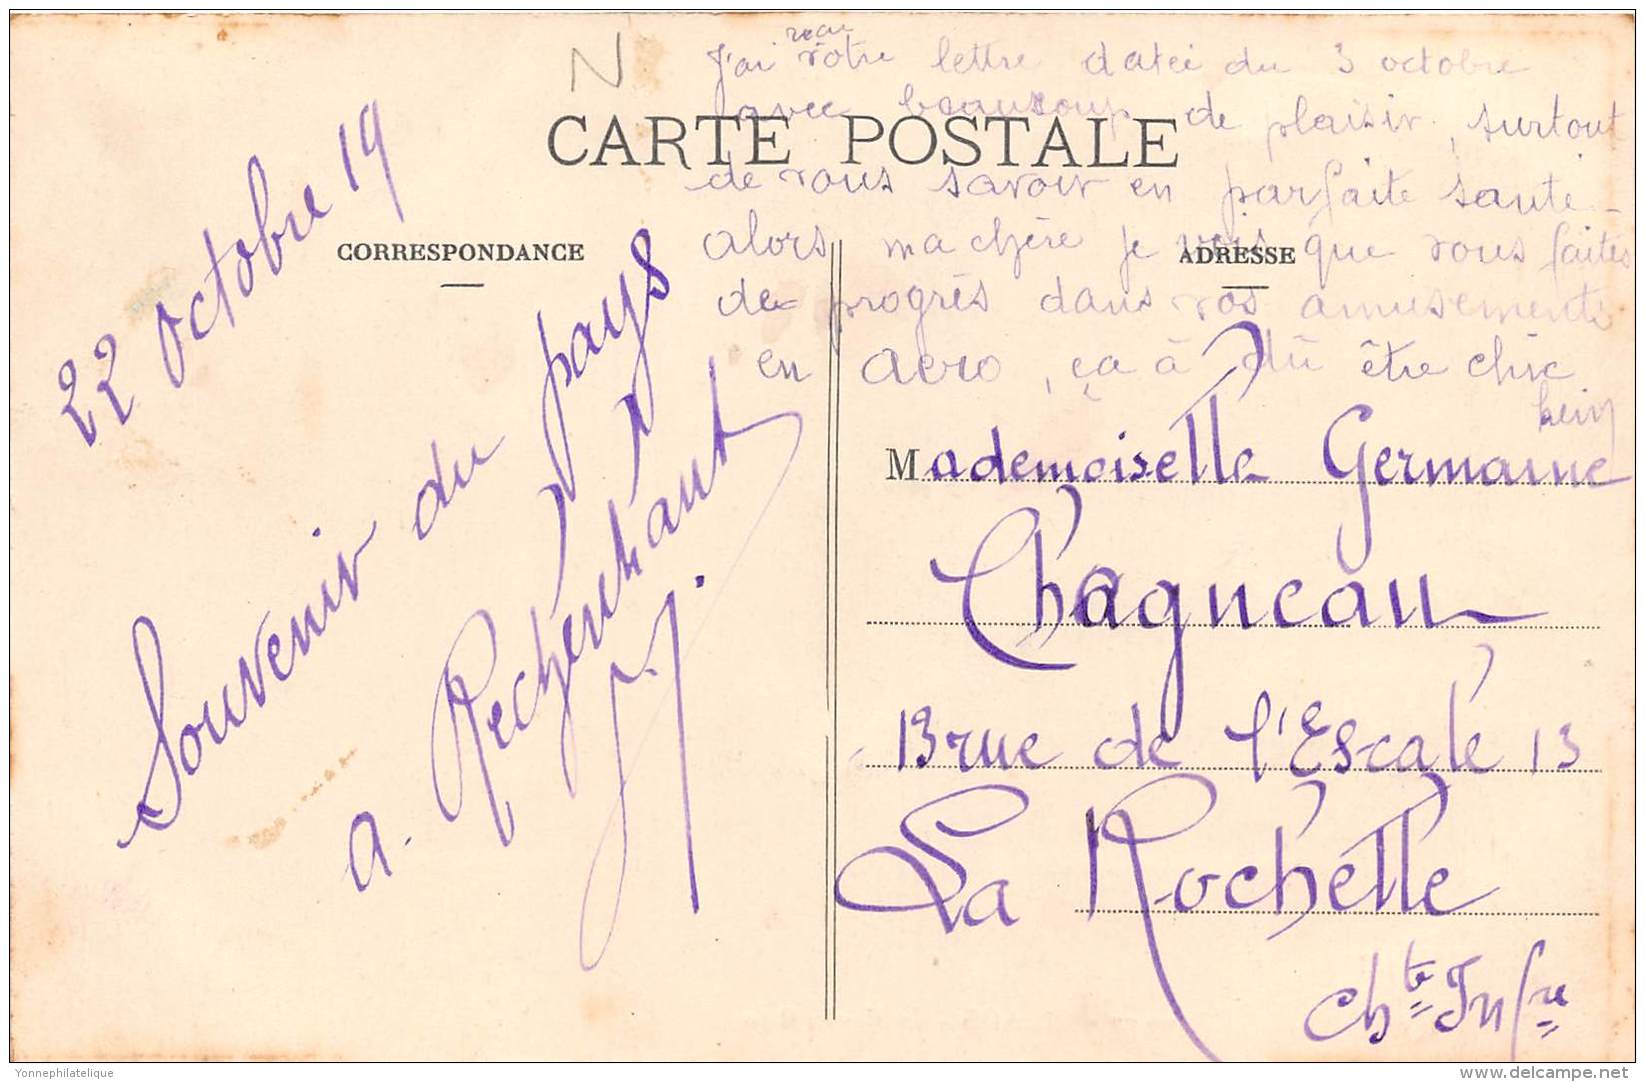 N
J'ai reçu votre lettre datée du 3 octobre
avec beaucoup de plaisir, surtout
CARTE POSTALE
de vous savoir en parfaite santé -
alors ma chère je vois que vous faites
CORRESPONDANCE
ADRESSE
des progrès dans vos amusements
en aero, ça à dû être chic
hein
22 octobre 19
Souvenir du pays
A. Recherchant
J.
Mademoiselle Germaine
Chagneau
13 rue de l'Escale 13
La Rochelle
Chte Infre
Yonnephilatelique
delcampe.net